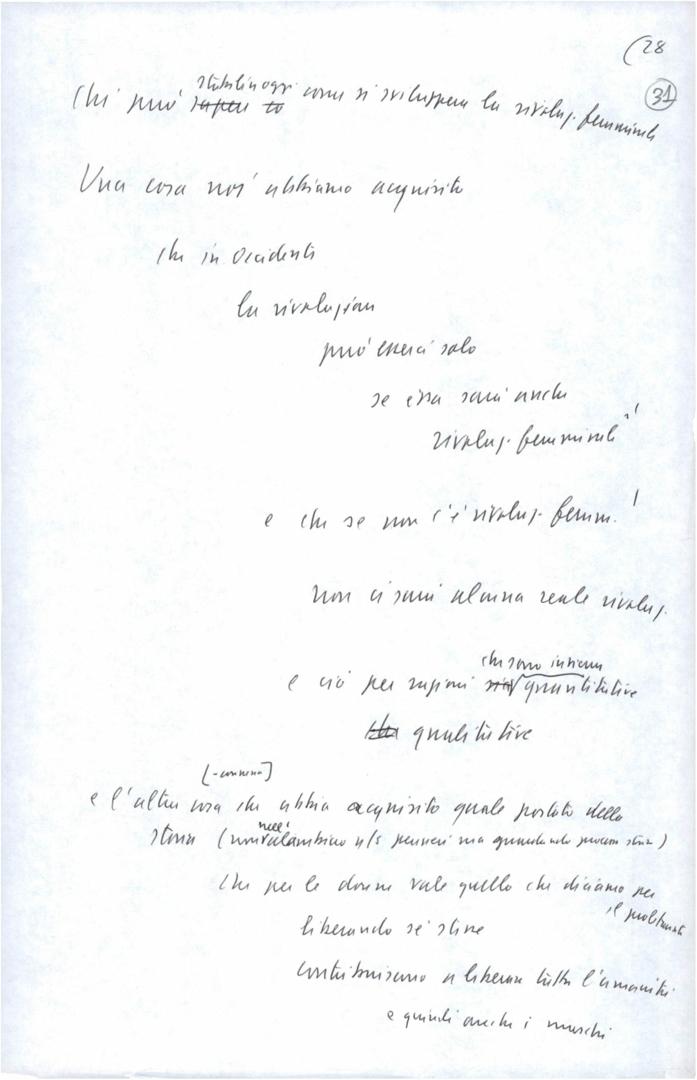 (28
31
stabilire oggi
Chi può sapere se come si svilupperà la rivoluz. femminile
Una cosa noi abbiamo acquisito
che in Occidente
la rivoluzione
può esserci solo
se essa sarà anche
rivoluz. femminile
e che se non c'è rivoluz. femm.
non ci sarà alcuna reale rivoluz.
che sono insieme
e ciò per ragioni quantitative
qualitative
e l'altra cosa che abbia acquisito quale portato della
storia (non nell' alambicco n/s pensieri ma guardando processo storico)
che per le donne vale quello che diciamo per
il proletariato
liberando se stesse
contribuiscono a liberare tutta l'umanità
e quindi anche i maschi